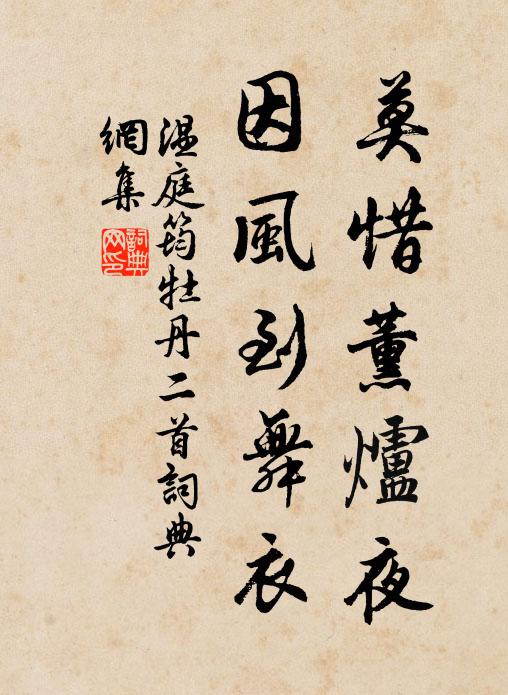 莫惜薰爐夜
因風到舞衣
溫庭筠牡丹二首詞典
網集
詞典
网印